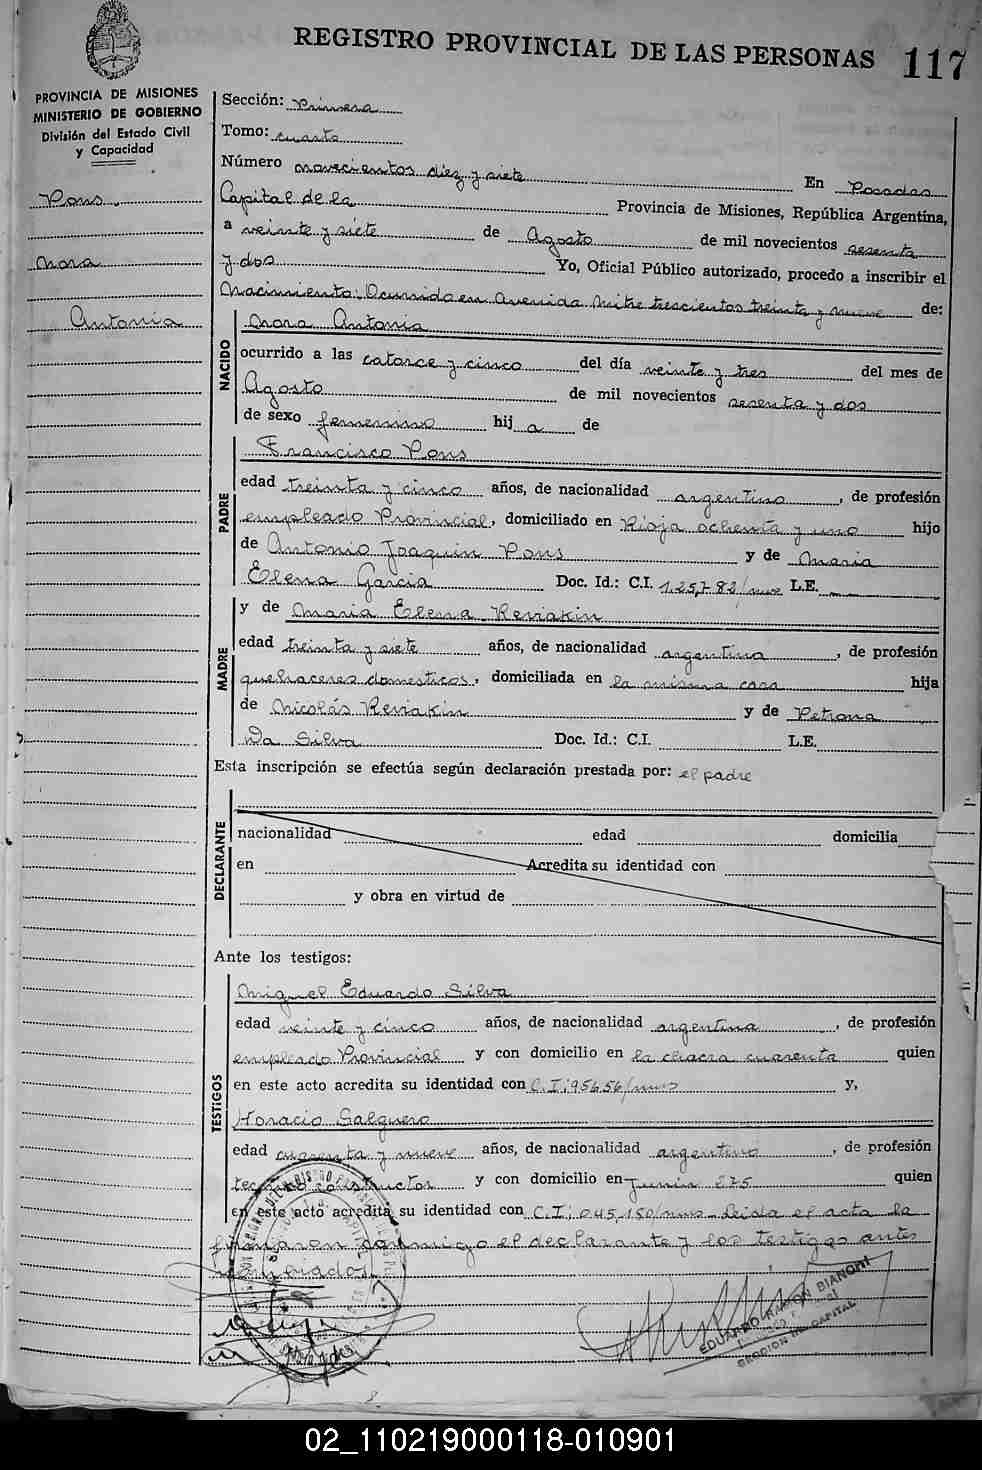 REGISTRO PROVINCIAL DE LAS PERSONAS 117
PROVINCIA DE MISIONES
MINISTERIO DE GOBIERNO
División del Estado Civil
y Capacidad
Pons
Nora
Antonia
Sección: Primera
Tomo: cuarto
Número novecientos diez y siete En Posadas
Capital de la Provincia de Misiones, República Argentina,
a veinte y siete de Agosto de mil novecientos sesenta
y dos Yo, Oficial Público autorizado, procedo a inscribir el
Nacimiento: Ocurrido en Avenida Mitre trescientos treinta y nueve de:
NACIDO
Nora Antonia
ocurrido a las catorce y cinco del día veinte y tres del mes de
Agosto de mil novecientos sesenta y dos
de sexo femenino hij a de
PADRE
Francisco Pons
edad treinta y cinco años, de nacionalidad argentino, de profesión
empleado Provincial, domiciliado en Rioja ochenta y uno hijo
de Antonio Joaquin Pons y de Maria
Elena Garcia Doc. Id.: C.I. 125,782/mnes L.E.
y de Maria Elena Reviakin
MADRE
edad treinta y siete años, de nacionalidad argentina, de profesión
quehaceres domesticos, domiciliada en la misma casa hija
de Nicolás Reviakin y de Petrona
Da Silva Doc. Id.: C.I. L.E.
Esta inscripción se efectúa según declaración prestada por: el padre
DECLARANTE
nacionalidad edad domicilia
en Acredita su identidad con
y obra en virtud de
Ante los testigos:
TESTIGOS
Miguel Eduardo Silva
edad veinte y cinco años, de nacionalidad argentina, de profesión
empleado Provincial y con domicilio en la chacra cuarenta quien
en este acto acredita su identidad con C.I: 95656/mnes y,
Horacio Salguero
edad cuarenta y nueve años, de nacionalidad argentino, de profesión
tecnico constructor y con domicilio en Junin 875 quien
en este acto acredita su identidad con C.I: 045,150/mnes Leida el acta la
firmaron conmigo el declarante y los testigos antes
nombrados.
EDUARDO RAMON BIANCHI
SECCION CAPITAL
02_110219000118-010901